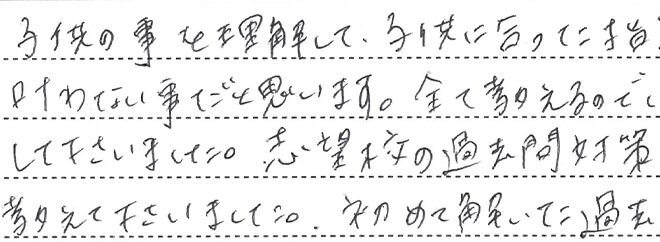 子供の事を理解して、子供に合った指
叶わない事だと思います。全て教えるので
して下さいました。志望校の過去問対策
教えて下さいました。初めて解いた過去